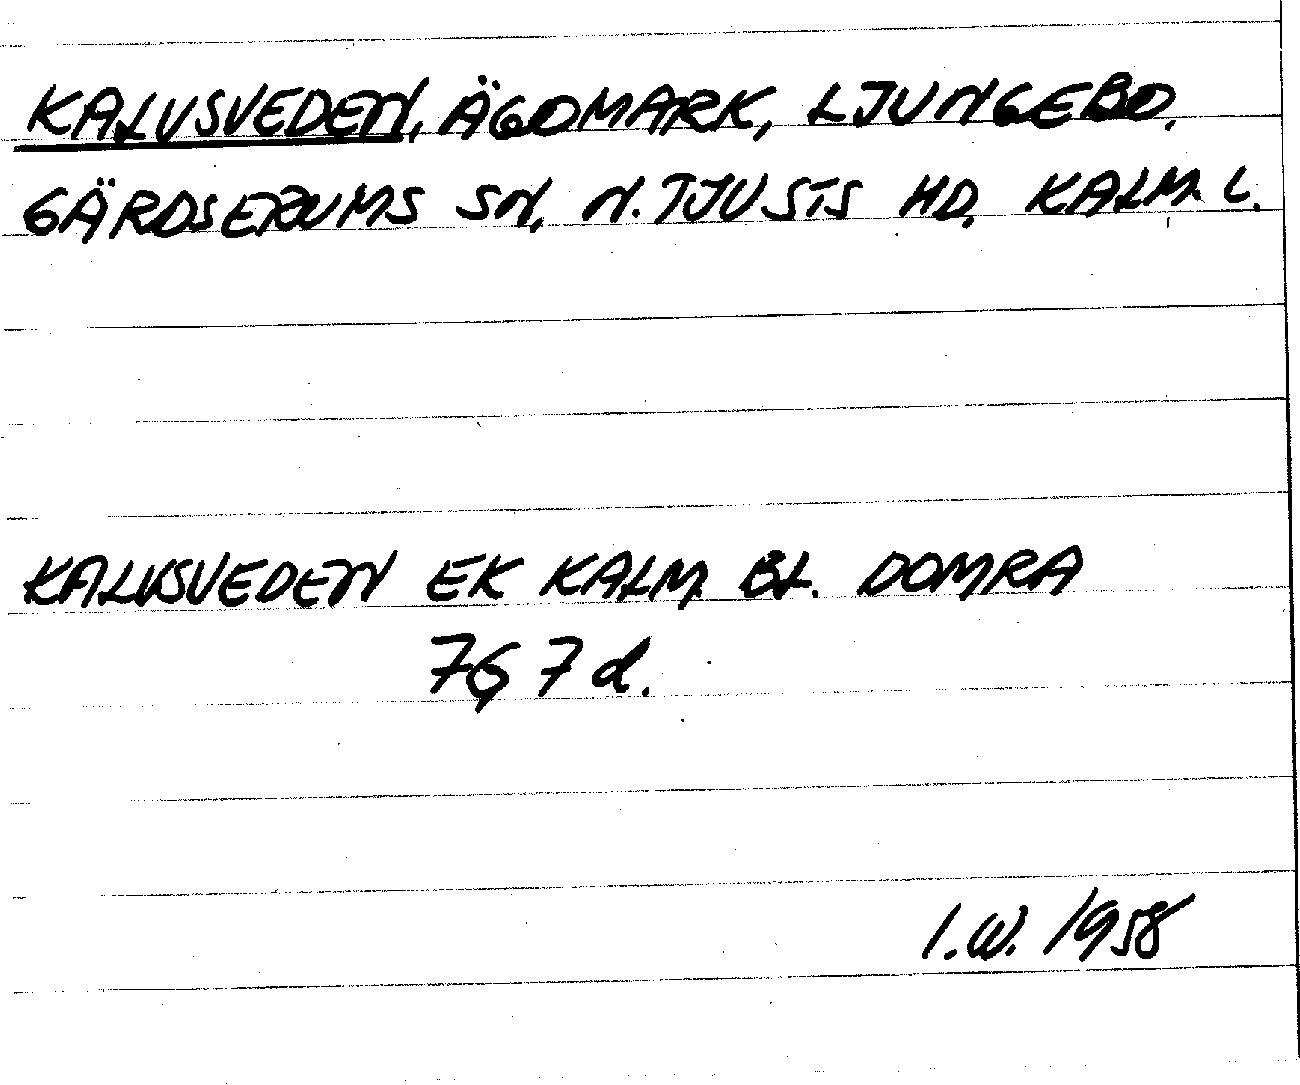 KALVSVEDEN, ÄGOMARK, LJUNGEBO.
GÄRDSERUMS SN, N. TJUSTS HD, KALM. L.
KALVSVEDEN EK KALM. BL. DOMRA
7G 7d.
I.W. 1958